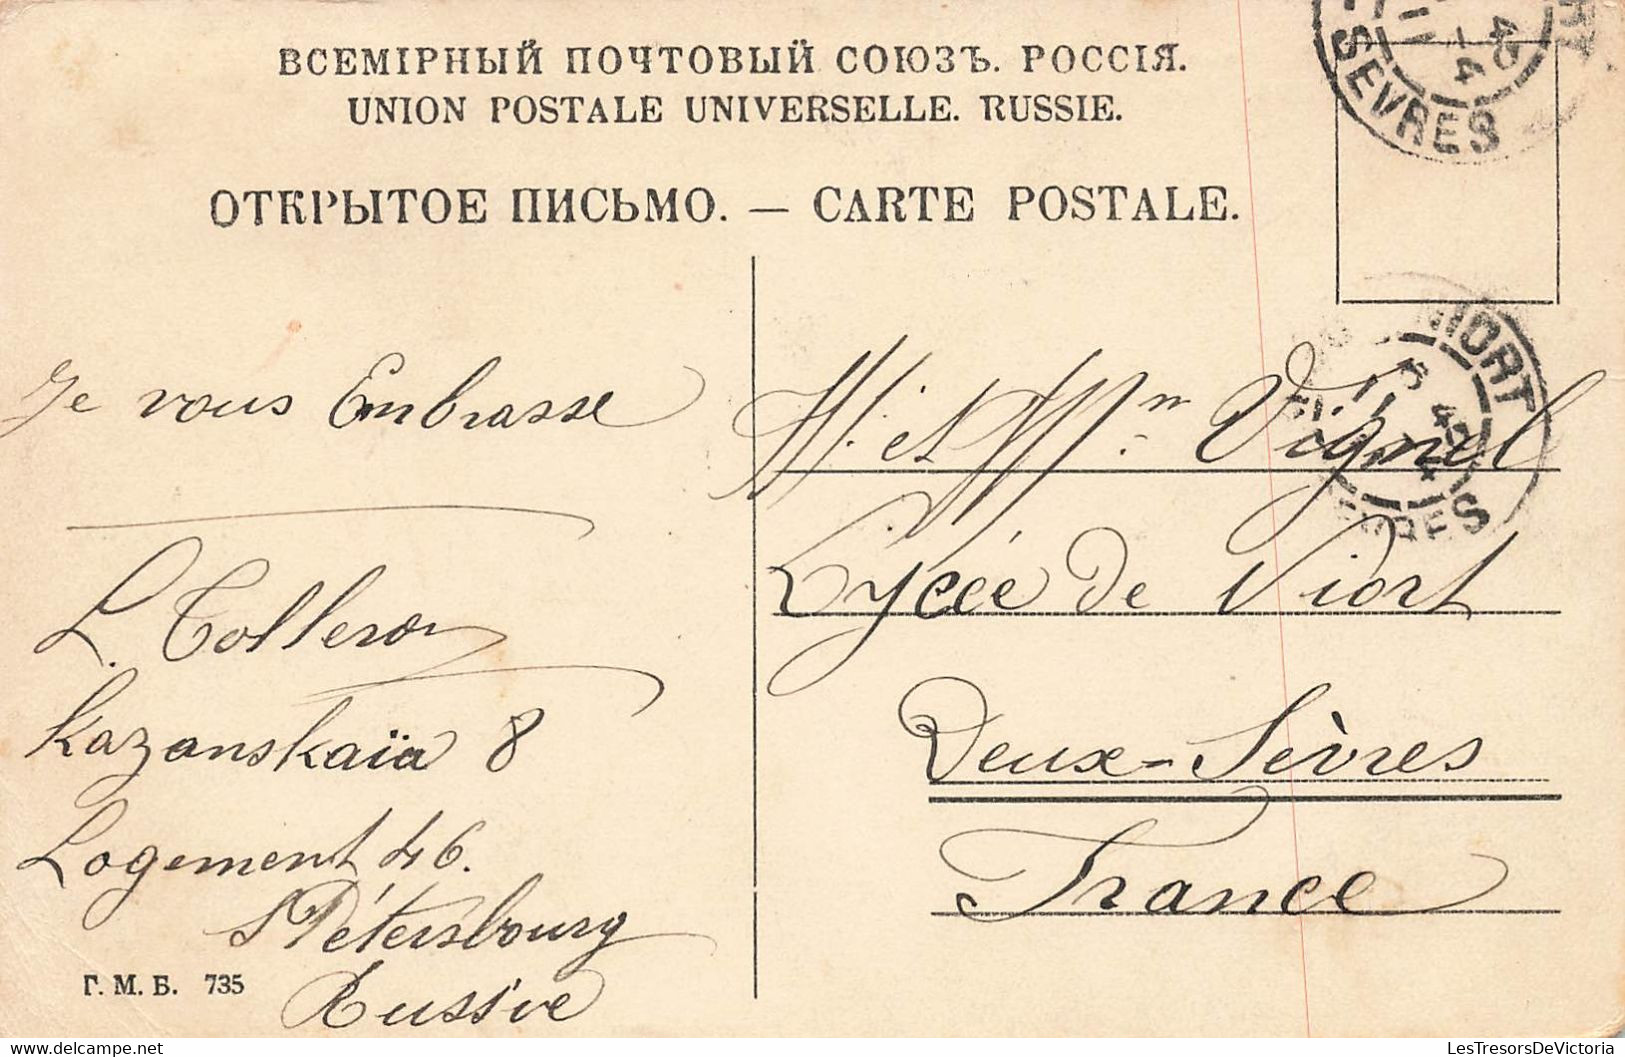 ВСЕМІРНЫЙ ПОЧТОВЫЙ СОЮЗЪ. РОССІЯ.
UNION POSTALE UNIVERSELLE. RUSSIE.
ОТКРЫТОЕ ПИСЬМО. — CARTE POSTALE.
SEVRES
11 -4
45
NIORT
Je vous Embrasse
L. Tolleron
Kazanskaïa 8
Logement 46.
St Pétersbourg
Russie
Г. М. Б. 735
M. et Mme Vignol
Lycée de Niort
Deux-Sèvres
France
LesTresorsDeVictoria